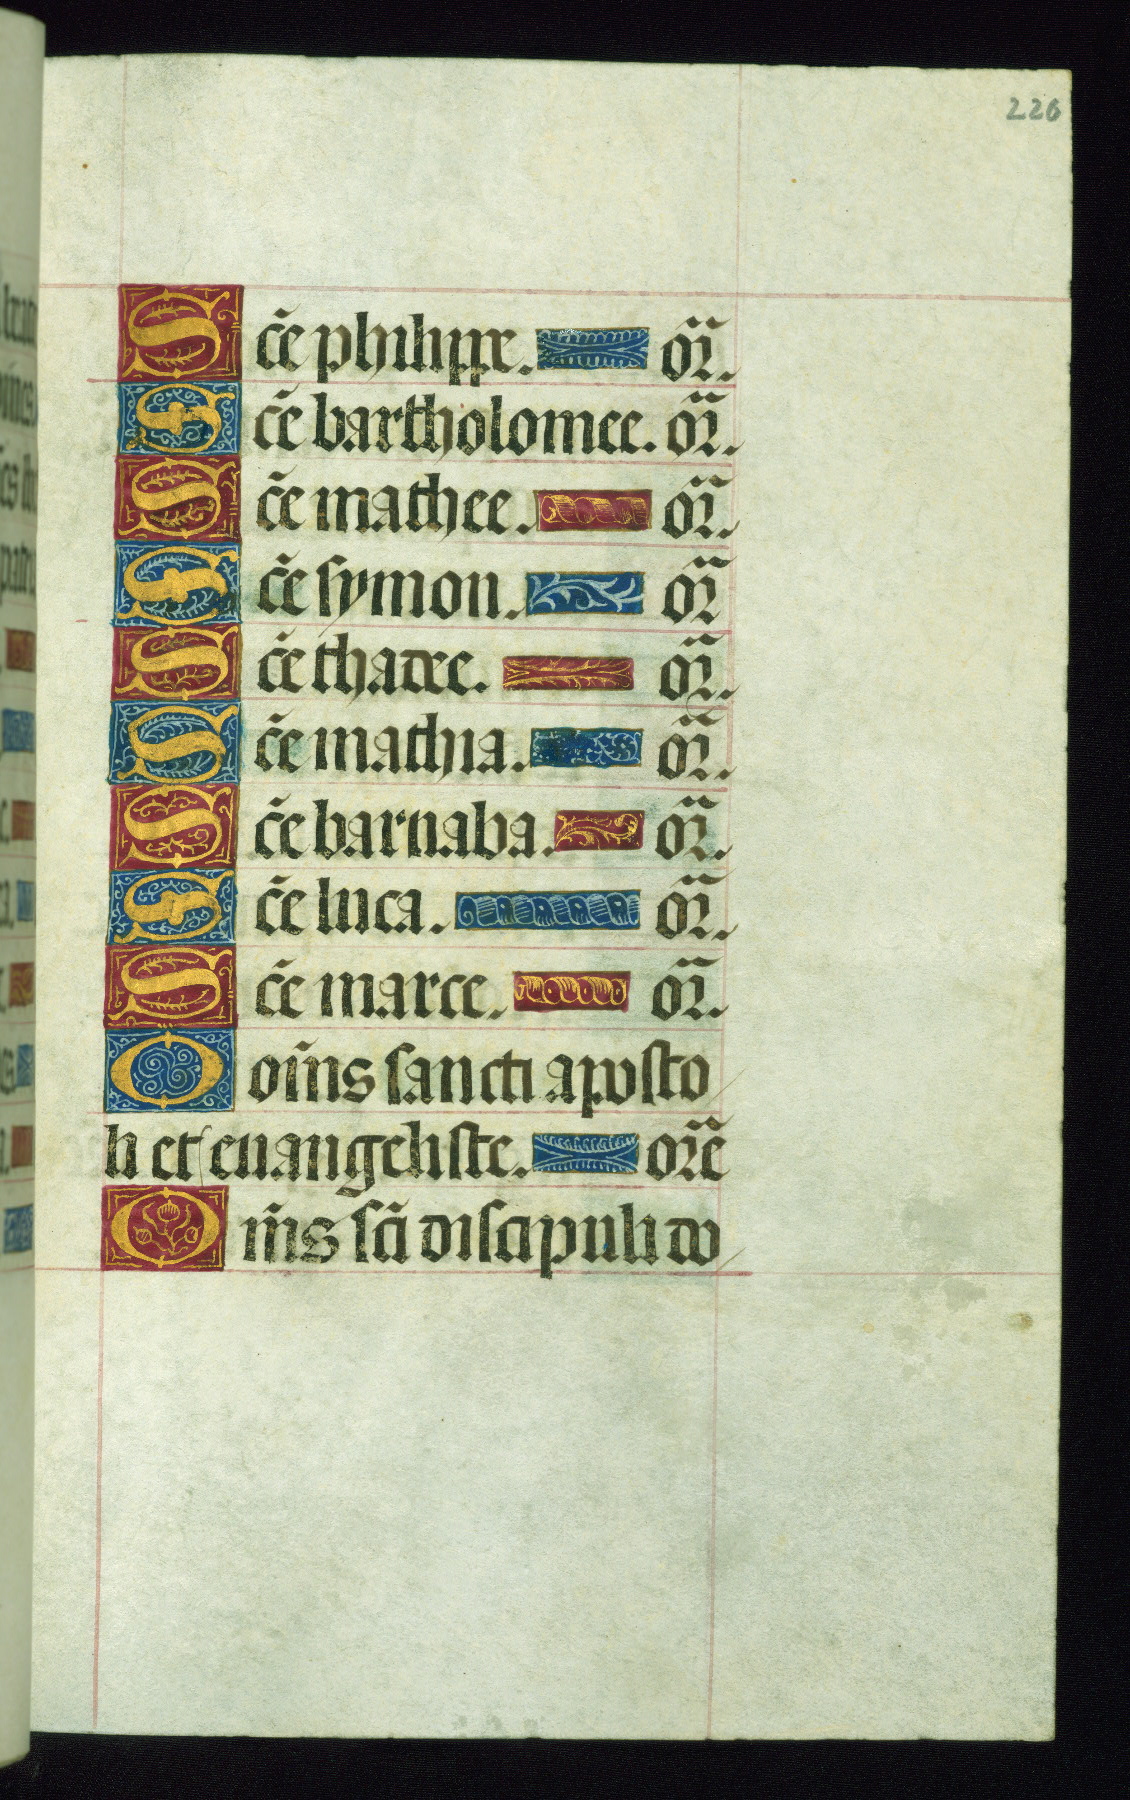 226
Sc̄e philippe. or̄.
Sc̄e bartholomee. or̄.
Sc̄e mathee. or̄.
Sc̄e symon. or̄
Sc̄e thadee. or̄.
Sc̄e mathia. or̄.
Sc̄e barnaba. or̄.
Sc̄e luca. or̄.
Sc̄e marce. or̄.
O om̄s sancti aposto
li et euangeliste. or̄e
Om̄s sc̄i discipuli do